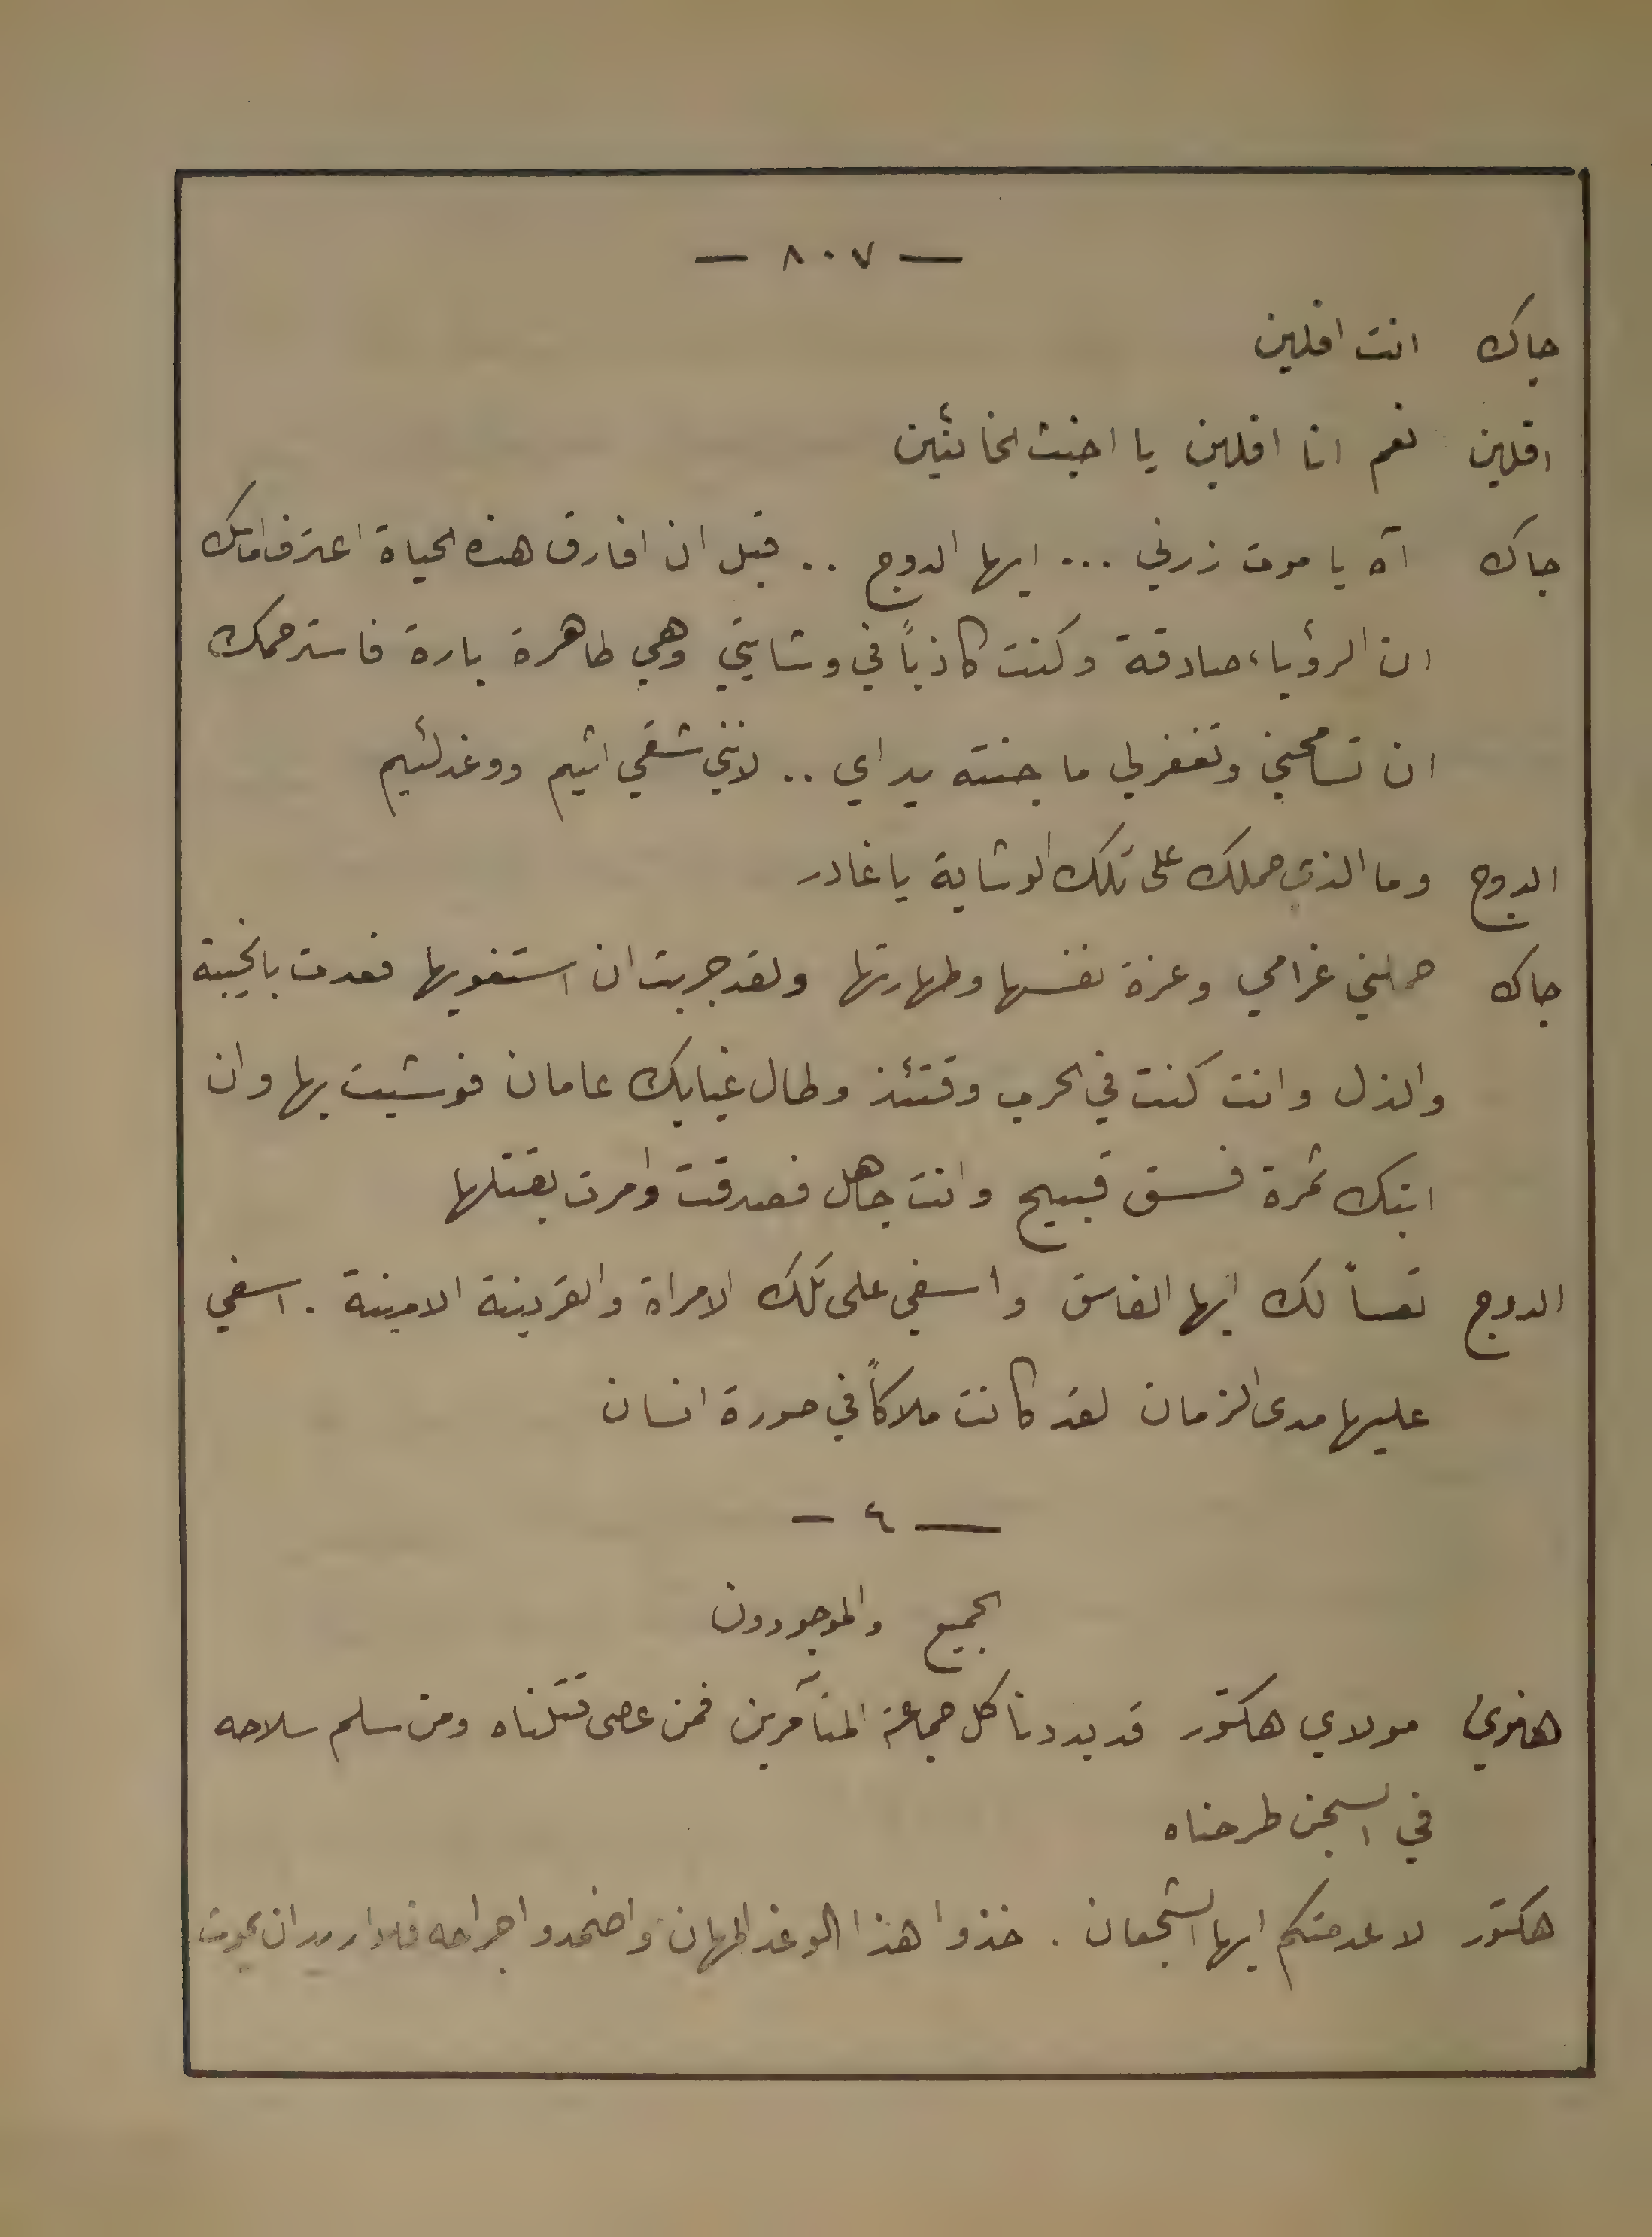 — ٨٠٧ —
جاك انت افلين
افلين نعم انا افلين يا اخبث الخائنين
جاك آه يا موت زرني ... ايها الدوج .. قبل ان افارق هذه الحياة اعترف امامك
ان الرؤياء صادقة وكنت كاذباً في وشايتي وهي طاهرة بارة فاسترحمك
ان تسامحني وتغفر لي ما جنته يداي .. لانني شقي اثيم ووغد لئيم
الدوج وما الذي حملك على تلك الوشاية يا غادر
جاك حملني غرامي وعزة نفسها وطهارتها ولقد جربت ان استغويها فعدت بالخيبة
والذل وانت كنت في الحرب وقتئذ وطال غيابك عامان فوشيت بها وان
ابنك ثمرة فسق قبيح وانت جاهل فصدقت وامرت بقتلها
الدوج تعساً لك ايها الفاسق وا سفي على تلك الامراة والقرينة الامينة . اسفي
عليها مدى الزمان لقد كانت ملاكاً في صورة انسان
— ٤ —
الجميع والموجودون
هنري مولاي هكتور قد بددنا كل جماعة المتآمرين فمن عصى قتلناه ومن سلم سلاحه
في السجن طرحناه
هكتور لا عدمتكم ايها الشجعان . خذوا هذا الوغد المهان واضمدوا جراحه فلا اريد ان يموت